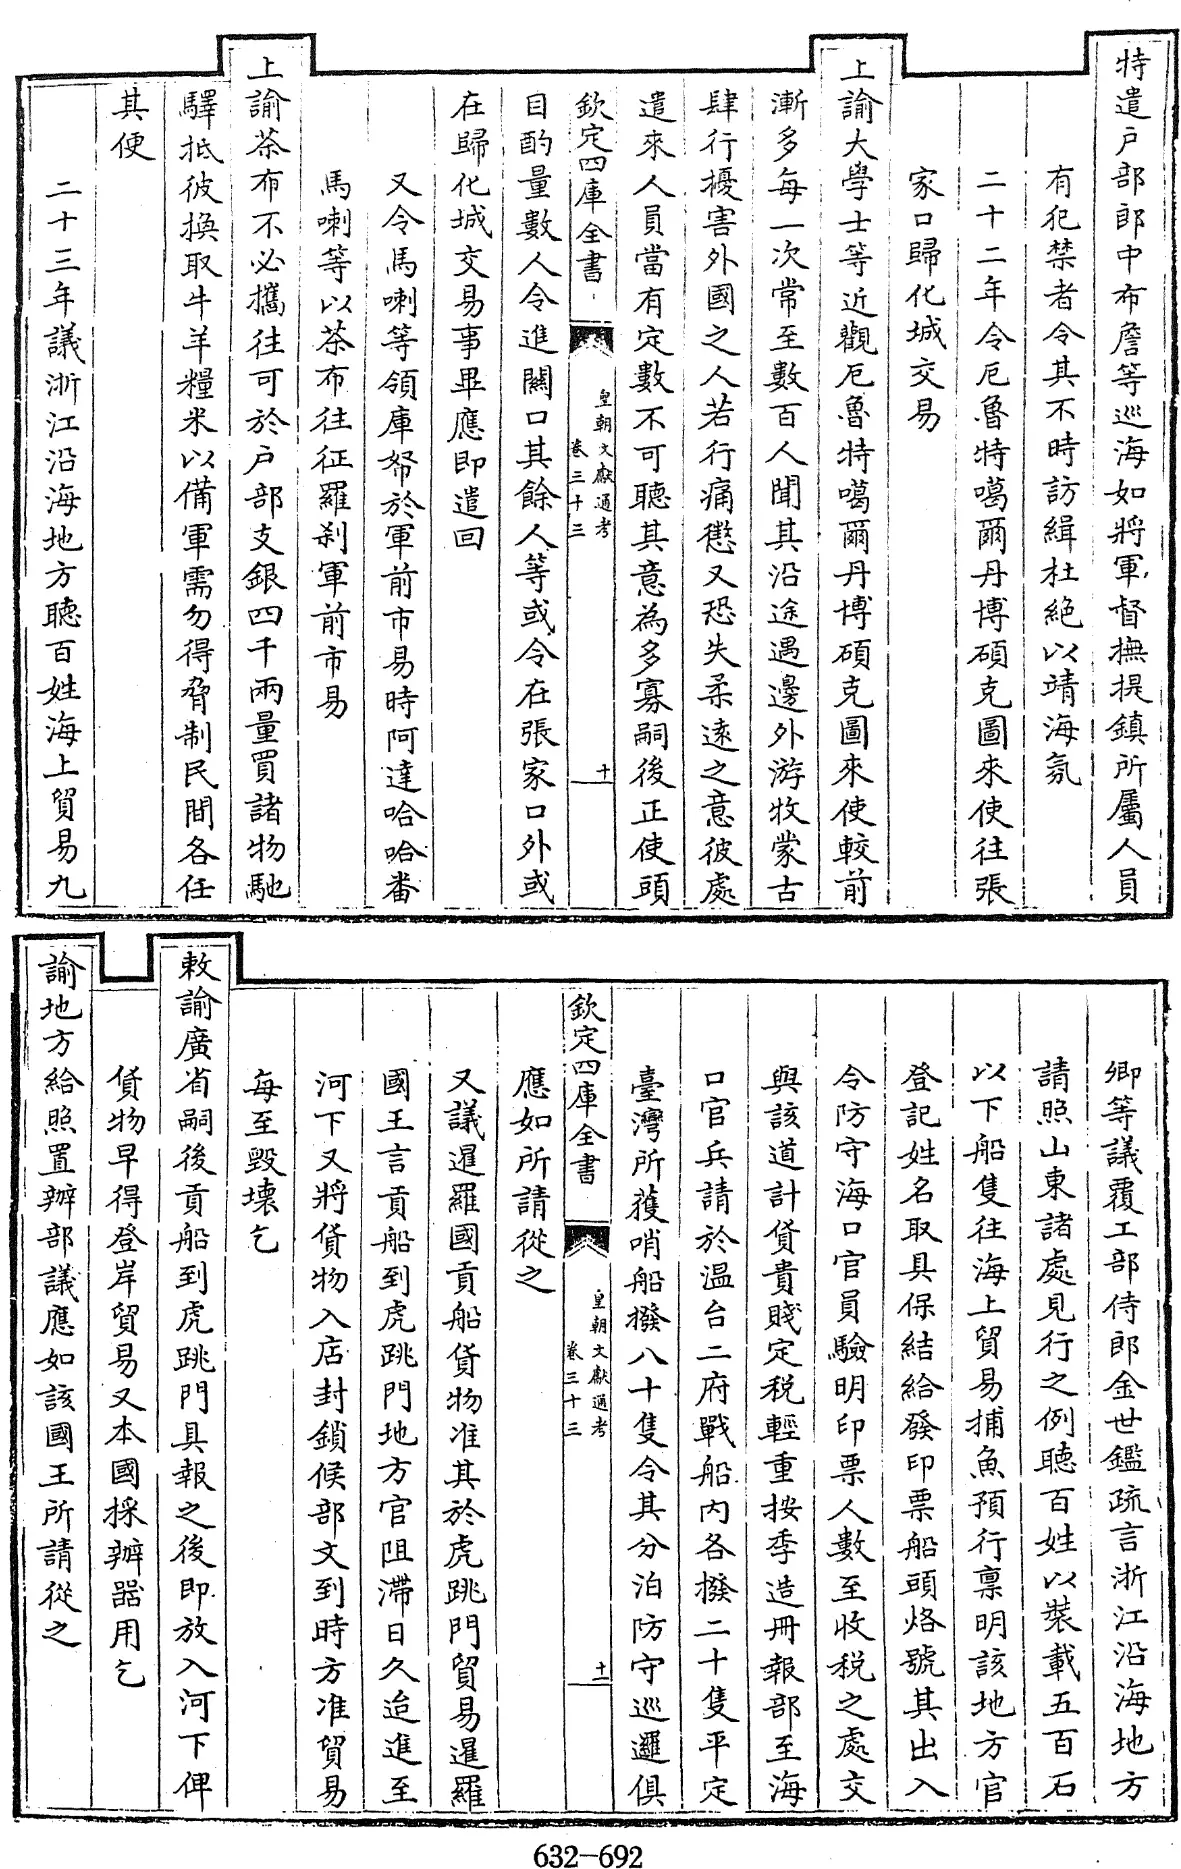 特遣戶部郎中布詹等巡海如將軍督撫提鎮所屬人員
有犯禁者令其不時訪緝杜絶以靖海氛
二十二年令厄魯特噶爾丹博碩克圖來使往張
家口歸化城交易
上諭大學士等近觀厄魯特噶爾丹博碩克圖來使較前
漸多每一次常至數百人聞其沿途遇邊外游牧蒙古
肆行擾害外國之人若行痛懲又恐失柔遠之意彼處
遣來人員當有定數不可聽其意為多寡嗣後正使頭
欽定四庫全書
皇朝文獻通考
卷三十三
十
目酌量數人令進關口其餘人等或令在張家口外或
在歸化城交易事畢應即遣回
又令馬喇等領庫帑於軍前市易時阿達哈哈番
馬喇等以茶布往征羅刹軍前市易
上諭茶布不必攜往可於戶部支銀四千兩量買諸物馳
驛抵彼換取牛羊糧米以備軍需勿得脅制民間各任
其便
二十三年議浙江沿海地方聽百姓海上貿易九
卿等議覆工部侍郎金世鑑疏言浙江沿海地方
請照山東諸處見行之例聽百姓以裝載五百石
以下船隻往海上貿易捕魚預行禀明該地方官
登記姓名取具保結給發印票船頭烙號其出入
令防守海口官員驗明印票人數至收稅之處交
與該道計貨貴賤定稅輕重按季造冊報部至海
口官兵請於温台二府戰船內各撥二十隻平定
臺灣所獲哨船撥八十隻令其分泊防守巡邏俱
欽定四庫全書
皇朝文獻通考
卷三十三
十一
應如所請從之
又議暹羅國貢船貨物准其於虎跳門貿易暹羅
國王言貢船到虎跳門地方官阻滯日久迨進至
河下又將貨物入店封鎖候部文到時方准貿易
每至毀壞乞
敕諭廣省嗣後貢船到虎跳門具報之後即放入河下俾
貨物早得登岸貿易又本國採辦器用乞
諭地方給照置辦部議應如該國王所請從之
632-692